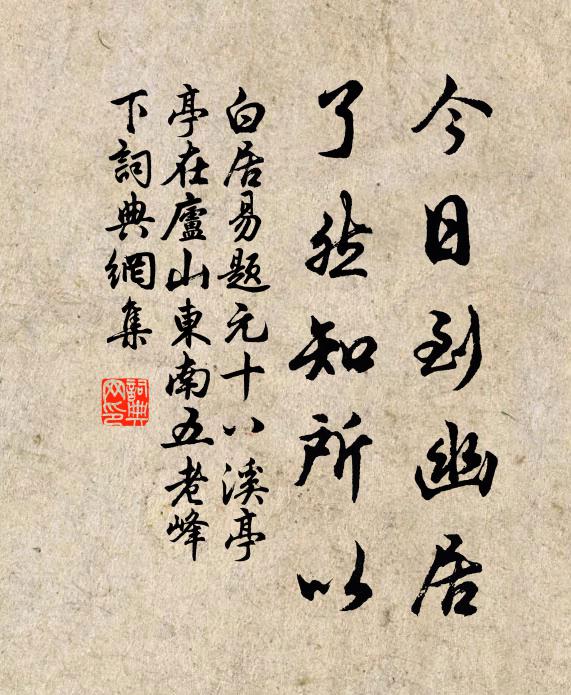 今日到幽居
了然知所以
白居易題元十八溪亭
亭在廬山東南五老峰
下詞典網集
詞典网印